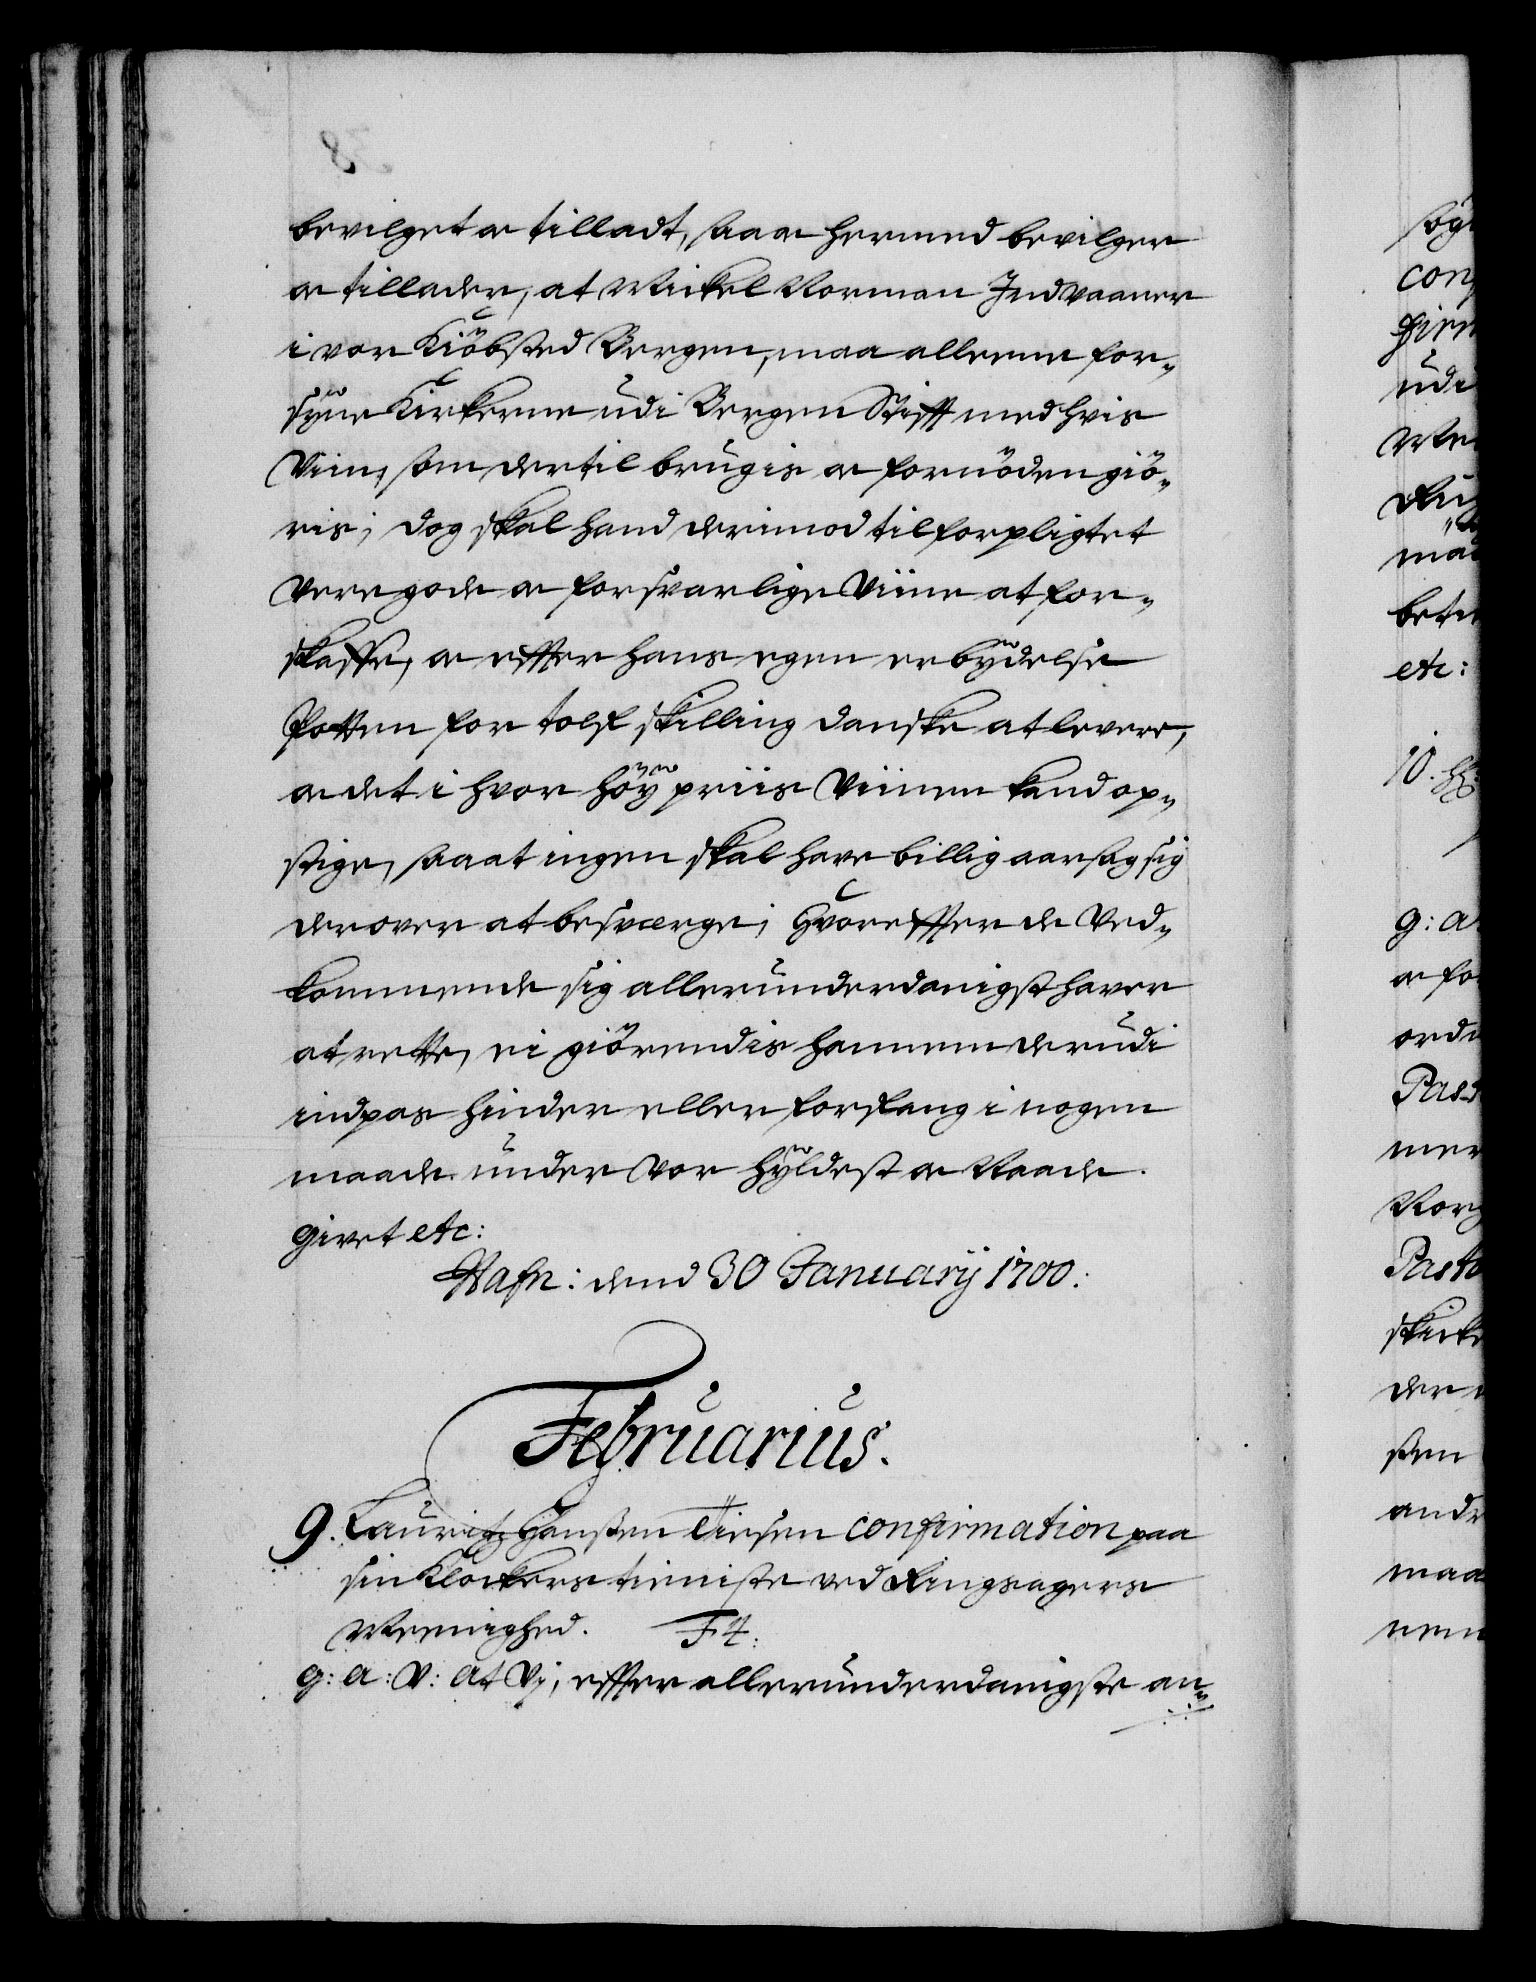 bevilget oc tilladt, saa oc hermed bevilger
oc tillader, at Michel Norman Indvaaner
i vor Kiöbsted Bergen, maa alleene for-
syne Kirkerne udi Bergen Stifft med hvis
Viin, som dertil brugis oc fornöden giö-
ris; dog skal hand derimod tilforpligtet
være gode oc forsvarlige Viine at for-
skaffe, oc effter hans egen erbydelse
Potten for tolf skilling danske at levere,
oc det i hvor höy priis Viinen kand op-
stige, saa at ingen skal have billig aarsag sig
derover at besværge; Hvoreffter de ved-
kommende sig allerunderdanigst haver
at rette, ei giörendis hannem derudi
indpas hinder eller forfang i nogen
maade. under vor hyldest oc Naade.
givet etc:
Hafn: dend 30 Januarij 1700.
Februarius.
9. Lauritz Hanssen Tiesen confirmation paa
sin Klockers tieniste ved Ringsagers
Meenighed. F 4:
g: a: v: at Vj, effter allerunderdanigste an-